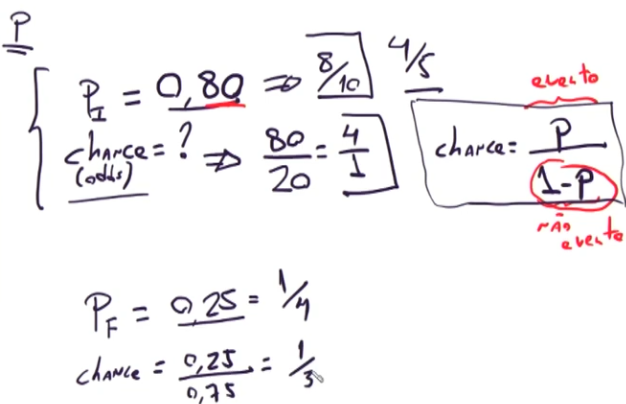 P
P_I = 0,80 => 8/10 4/5
chance = ? => 80/20 = 4/1
(odds)
evento
chance = P/1-P
não evento
P_F = 0,25 = 1/4
chance = 0,25/0,75 = 1/3